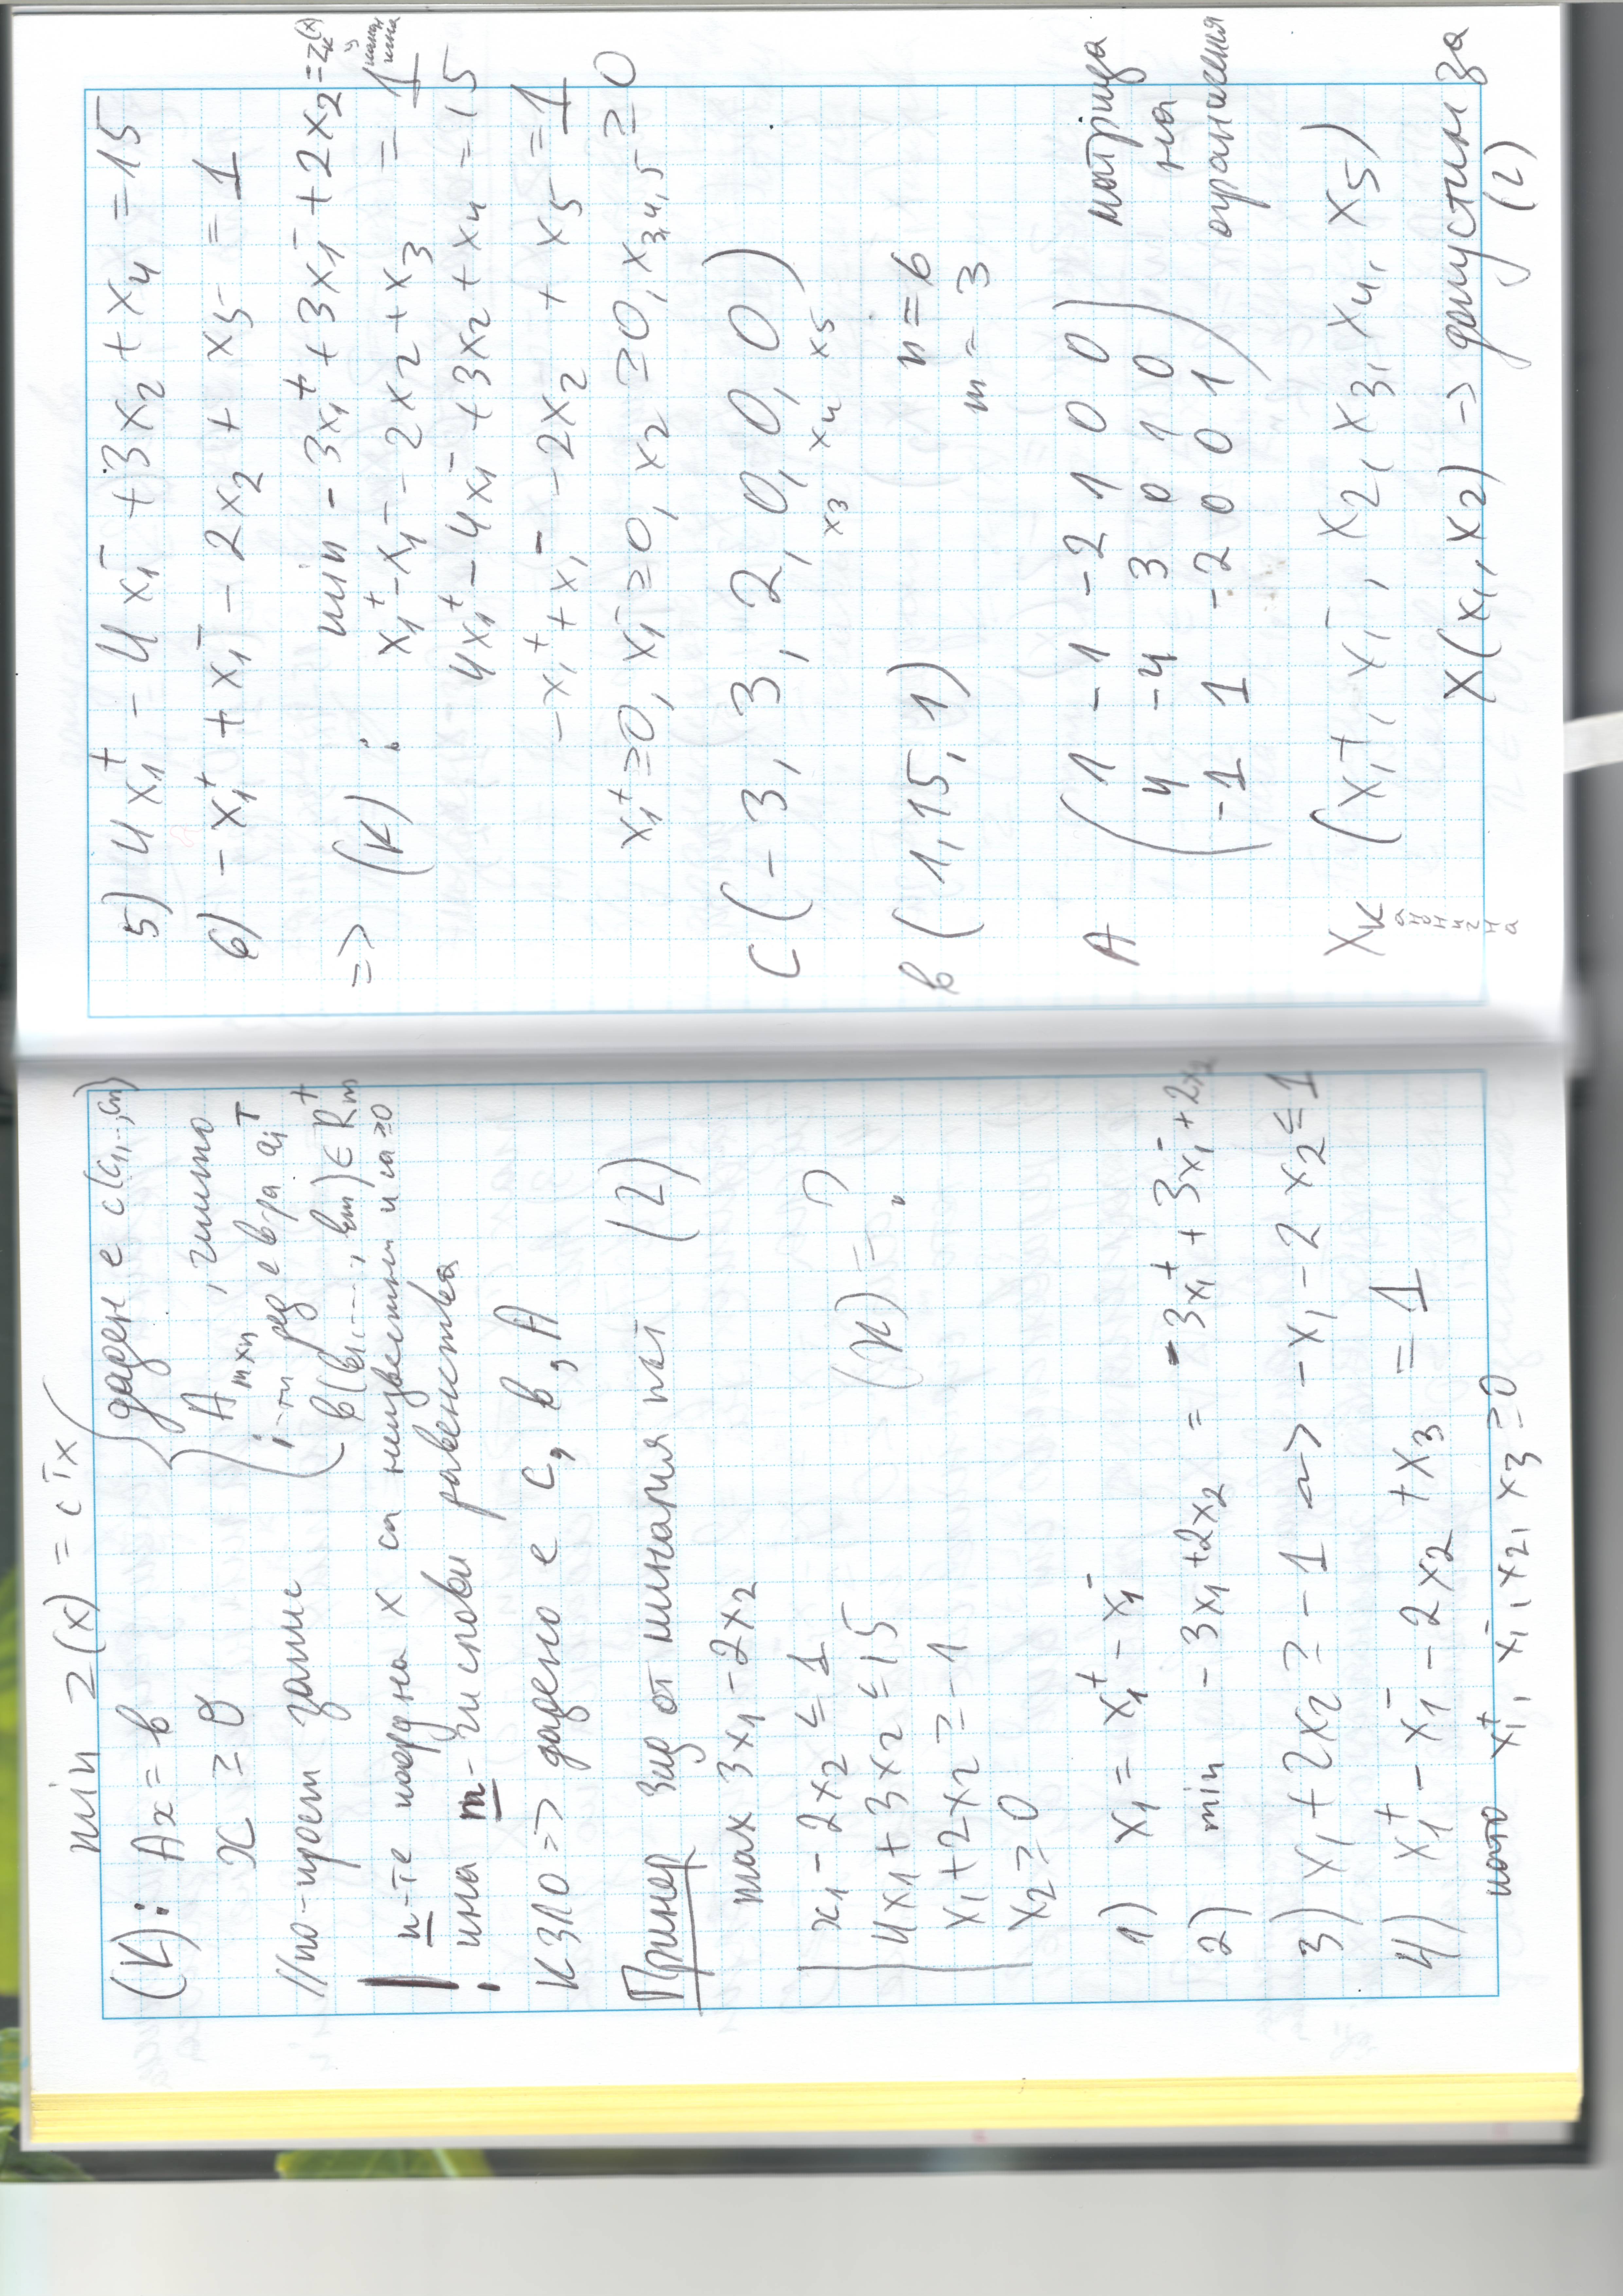 min z(x) = cᵀx
(K): Ax = b { даден е c(c₁,..,cₙ)
x ≥ 0 A mxn, чиито
i-ти ред е в-ра aᵢᵀ
//по-кратък запис b(b₁,...,bₘ) ∈ Rₘ⁺
! n-те коорд на x са неизвестни и са ≥0
има m-на брой равенства
КЗЛО => дадено е c, b, A
Пример Зад от миналия път (2)
max 3x₁ - 2x₂
x₁ - 2x₂ ≤ 1
4x₁ + 3x₂ ≤ 15 (К) = ?
x₁ + 2x₂ ≥ -1
x₂ ≥ 0
1) x₁ = x₁⁺ - x₁⁻
2) min -3x₁ + 2x₂ = -3x₁⁺ + 3x₁⁻ + 2x₂
3) x₁ + 2x₂ ≥ -1 ~> -x₁ - 2x₂ ≤ 1
4) x₁⁺ - x₁⁻ - 2x₂ + x₃ = 1
като x₁⁺, x₁⁻, x₂, x₃ ≥ 0
5) 4x₁⁺ - 4x₁⁻ + 3x₂ + x₄ = 15
6) -x₁⁺ + x₁⁻ - 2x₂ + x₅ = 1
=> (K): min -3x₁⁺ + 3x₁⁻ + 2x₂ = zₖ(x)
x₁⁺ - x₁⁻ - 2x₂ + x₃ = 1
4x₁⁺ - 4x₁⁻ + 3x₂ + x₄ = 15
-x₁⁺ + x₁⁻ - 2x₂ + x₅ = 1
x₁⁺ ≥ 0, x₁⁻ ≥ 0, x₂ ≥ 0, x₃,₄,₅ ≥ 0
C (-3, 3, 2, 0, 0, 0)
x₃ x₄ x₅
b (1, 15, 1) n = 6
m = 3
A ( 1 -1 -2 1 0 0 ) матрица
4 -4 3 0 1 0 на
-1 1 -2 0 0 1 ограничения
Xₖ (x₁⁺, x₁⁻, x₂, x₃, x₄, x₅)
X(x₁, x₂) -> допустим за
(2)